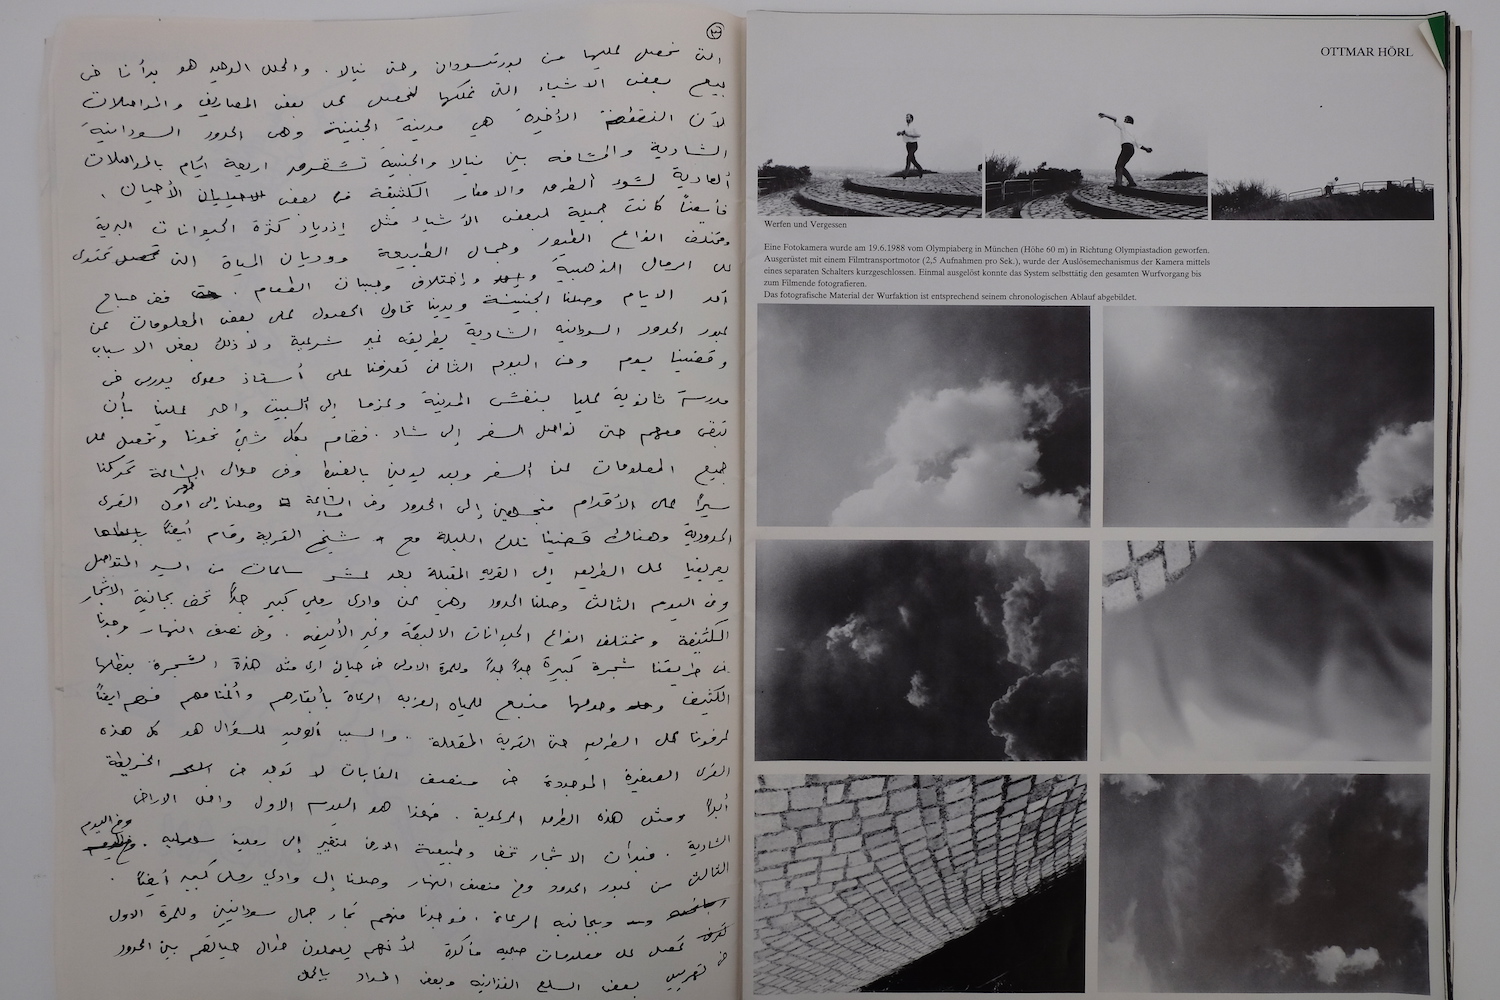 ٣
التى نحصل عليها من بورتسودان وحتى نيالا . والحل الوحيد هو بدأنا فى
بيع بعض الأشياء التى نملكها لنحصل على بعض المصاريف والمواصلات
لأن النقطة الأخيرة هي مدينة الجنينة وهى الحدود السودانية
الشادية والمسافه بين نيالا والجنينة تستغرق اربعة ايام بالمواصلات
العادية لسؤ الطرق والامطار الكثيفة فى بعض الأحيان .
فأيضاً كانت جميلة لبعض الأشياء مثل إزدياد كثرة الحيوانات البرية
ومختلف انواع الطيور وجمال الطبيعة ووديان المياة التى تحتوى
على الرمال الذهبية وإختلاف الطعام . ففى صباح
أحد الايام وصلنا الجنينة وبدينا نحاول الحصول على بعض المعلومات عن
عبور الحدود السودانيه الشادية بطريقه غير شرعية ولا ذلك بعض الاسباب
وقضينا يوم وفى اليوم الثانى تعرفنا على أستاذ يدرس فى
مدرسة ثانوية عليا بنفس المدينة وعزمنا إلى البيت واصر علينا بأن
نبقى معهم حتى نواصل السفر إلى شاد . فقام بكل شئ نحونا ونحصل على
جميع المعلومات عن السفر وبعد يومين بالضبط وفى حوالى الساعة تحركنا
سيراً على الأقدام متجهين إلى الحدود وفى الساعة وصلنا إلى أول القرى
الحدودية وهناك قضينا تلك الليلة مع شيخ القرية وقام أيضاً
بتعريفنا على الطريق إلى القرية المقبلة بعد عشر ساعات من السير المتواصل
وفى اليوم الثالث وصلنا الحدود وهي عن وادى رملي كبير جداً تحف بجانبه الاشجار
الكثيفة ومختلف انواع الحيوانات الاليفة وغير الأليفه . وفى نصف النهار وجدنا
فى طريقنا شجرة كبيرة جداً جداً وللمرة الاولى فى حياتى ارى مثل هذة الشجرة بظلها
الكثيف وحولها منبع للمياه العزبه الرعاة بأبقارهم وأغنامهم فهم ايضاً
عرفونا على الطريق حتى القرية المقبلة . والسبب الوحيد للسؤال هو كل هذه
القرى الصغيرة الموجودة فى منتصف الغابات لا توجد فى الخريطة
أبداً ومثل هذه الطرق الرعوية . فهذا هو اليوم الاول داخل الاراضى
الشادية . فبدأت الاشجار تخف وطبيعة الارض تتغير إلى رملية . وفى اليوم
الثالث من عبور الحدود وفى منتصف النهار وصلنا إلى وادي رملى كبير أيضاً .
وبجانبه الرعاة . فوجدنا منهم تجار جمال سودانيين وللمرة الاولى
نحصل على معلومات صحيحه مأكدة لأنهم يعملون طوال حياتهم بين الحدود
فى تهريب بعض السلع الغذائيه وبعض المواد
OTTMAR HÖRL
Werfen und Vergessen
Eine Fotokamera wurde am 19.6.1988 vom Olympiaberg in München (Höhe 60 m) in Richtung Olympiastadion geworfen.
Ausgerüstet mit einem Filmtransportmotor (2,5 Aufnahmen pro Sek.), wurde der Auslösemechanismus der Kamera mittels
eines separaten Schalters kurzgeschlossen. Einmal ausgelöst konnte das System selbsttätig den gesamten Wurfvorgang bis
zum Filmende fotografieren.
Das fotografische Material der Wurfaktion ist entsprechend seinem chronologischen Ablauf abgebildet.